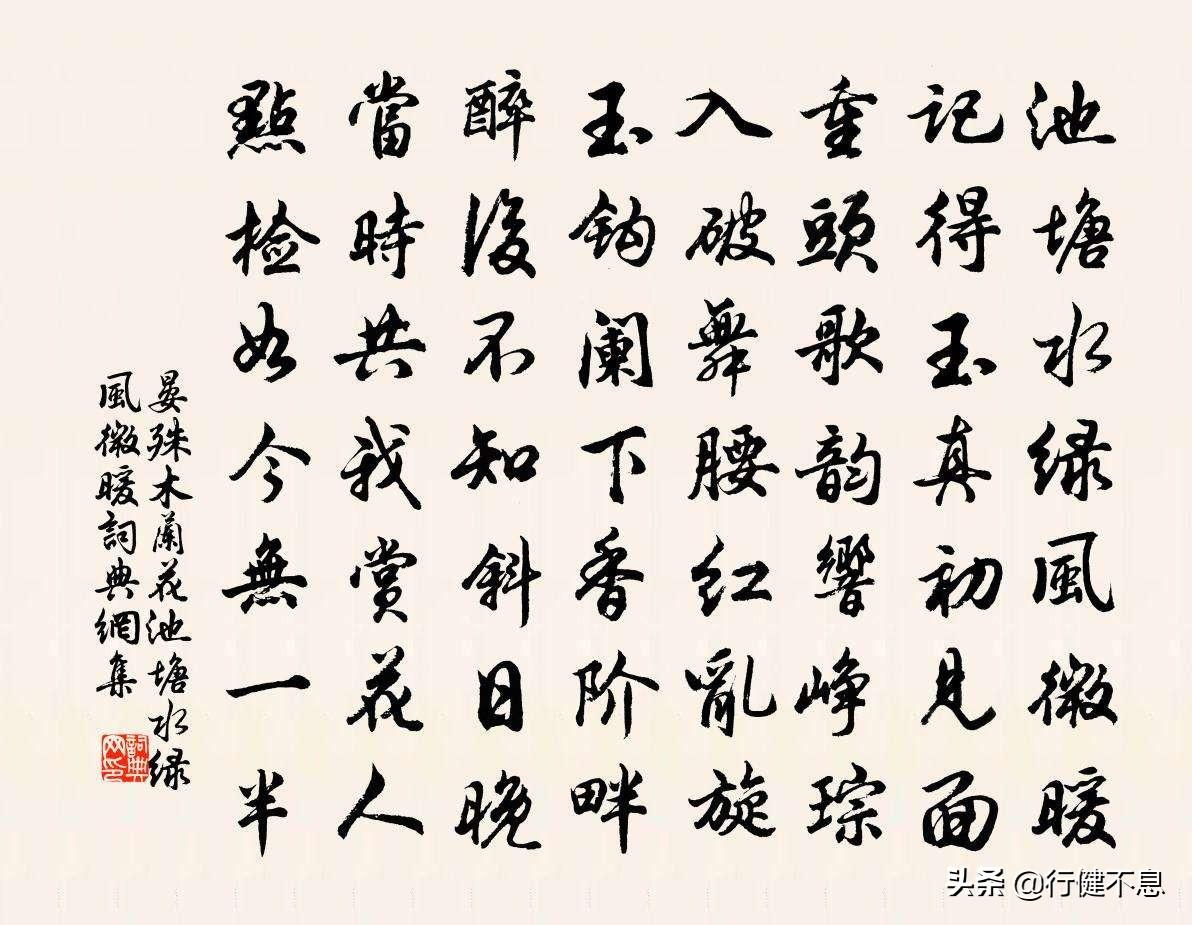 池塘水绿風微暖
記得玉真初見面
重頭歌韵響峥琮
入破舞腰红亂旋
玉钩阑下香阶畔
醉後不知斜日晚
當時共我赏花人
點檢如今無一半
晏殊木蘭花池塘水绿
風微暖詞典網集
詞典
网印
头条 @行健不息